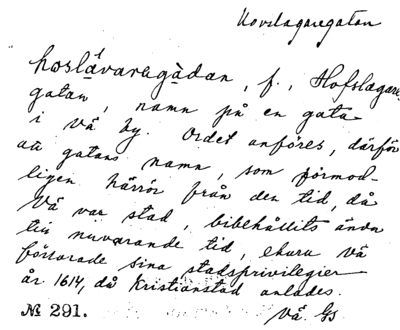 Hovslagaregatan
hoslávaragàdan, f., Hofslagare-
gatan, namn på en gata
i Vä by. Ordet anföres, därför
att gatans namn, som förmod-
ligen härrör från den tid, då
Vä var stad, bibehållits ända
till nuvarande tid, ehuru Vä
förlorade sina stadsprivilegier
år 1614, då Kristianstad anlades.
№ 291. Vä. GS